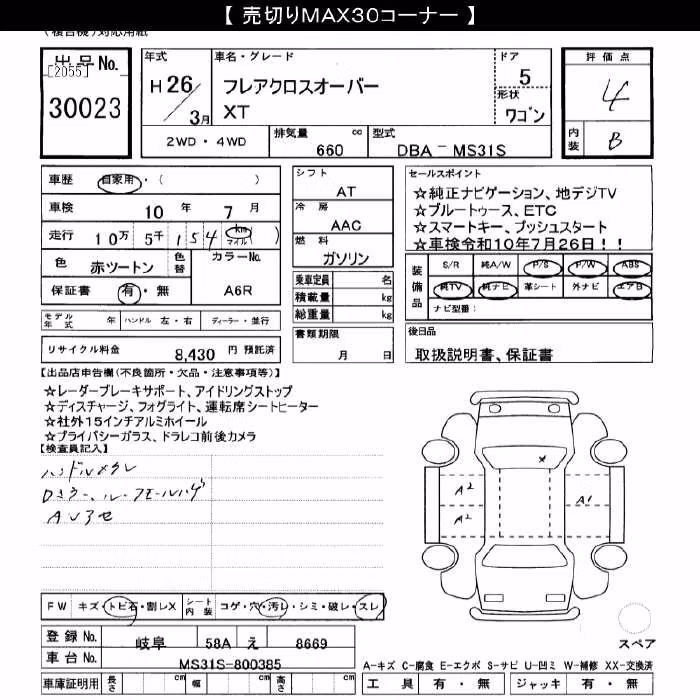 【 売切りMAX30コーナー 】
(複合機)対応用紙
出品No.
[2055]
30023
年式
H26/3月
車名・グレード
フレアクロスオーバー
XT
ドア
5
形状
ワゴン
評価点
4
内装
B
2WD・4WD
排気量 cc
660
型式
DBA - MS31S
車歴 自家用・( )
車検 10年 7月
走行 10万 5千 154 km マイル( )
色 赤ツートン
色替
カラーNo.
A6R
保証書 有・無
モデル年式 年 ハンドル 左・右 ディーラー・並行
リサイクル料金 8,430 円 預託済
シフト
AT
冷房
AAC
燃料
ガソリン
乗車定員 名
積載量 kg
総重量 kg
書類期限
月 日
セールスポイント
☆純正ナビゲーション、地デジTV
☆ブルートゥース、ETC
☆スマートキー、プッシュスタート
☆車検令和10年7月26日!!
装備品
S/R 純A/W P/S P/W ABS
純TV 純ナビ 革シート 外ナビ エアB
ナビ型番:
後日品
取扱説明書、保証書
【出品店申告欄(不良箇所・欠品・注意事項等)】
☆レーダーブレーキサポート、アイドリングストップ
☆ディスチャージ、フォグライト、運転席シートヒーター
☆社外15インチアルミホイール
☆プライバシーガラス、ドラレコ前後カメラ
【検査員記入】
ハンドルスレ
A2
A2
A1
×
FW キズ・トビ石・割レX シート内装 コゲ・穴・汚レ・シミ・破レ・スレ
登録No. 岐阜 58A え 8669
車台No. MS31S-800385
車庫証明用 長さ cm 幅 cm 高さ cm
スペア
A-キズ C-腐食 E-エクボ S-サビ U-凹ミ W-補修 XX-交換済
工具 有・無 ジャッキ 有・無